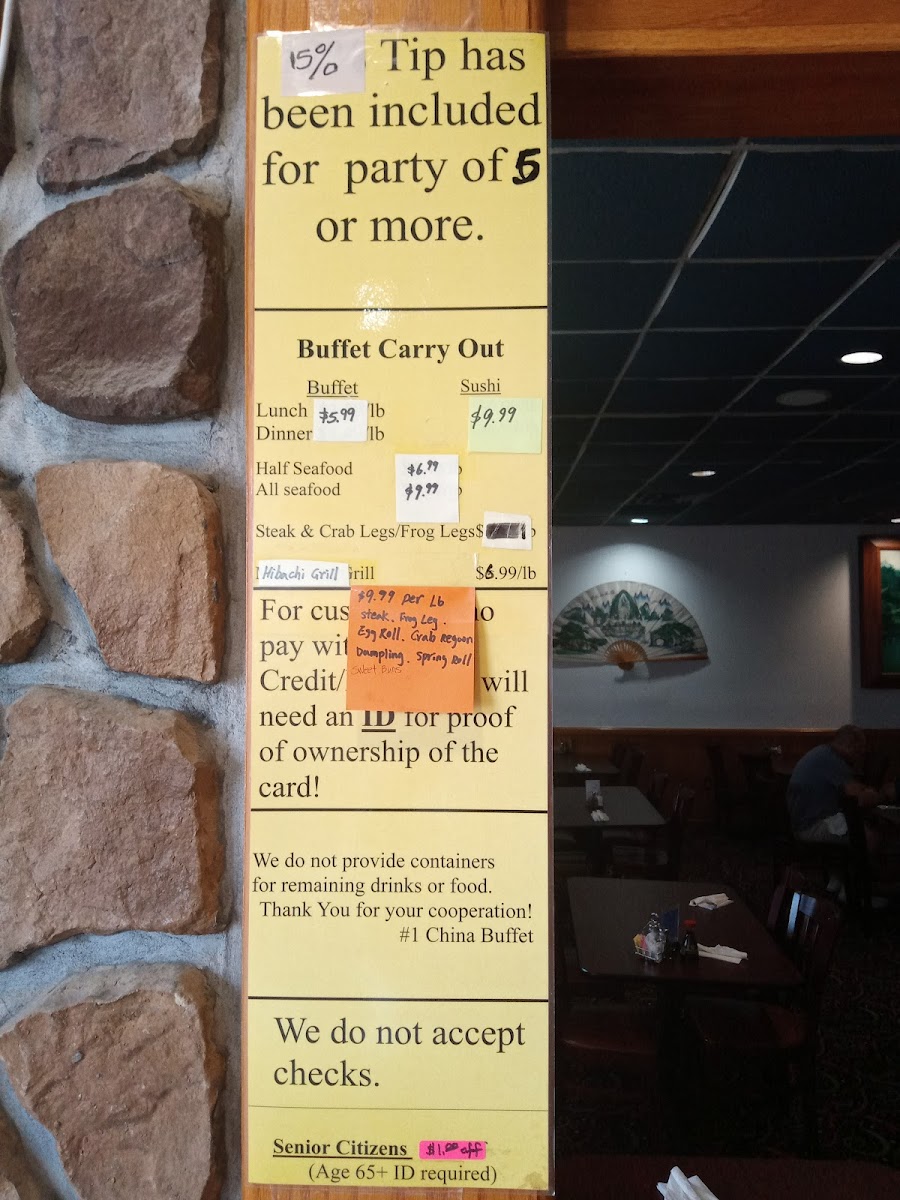 15% Tip has
been included
for party of 5
or more.
Buffet Carry Out
Buffet Sushi
Lunch $5.99 /lb $9.99
Dinner /lb
Half Seafood $6.99
All seafood $9.99
Steak & Crab Legs/Frog Legs$
Hibachi Grill Grill $6.99/lb
$9.99 per Lb
Steak. Frog Leg.
Egg Roll. Crab Regoon
Dumpling. Spring Roll
Sweet Buns
For cus o
pay wit
Credit/ will
need an ID for proof
of ownership of the
card!
We do not provide containers
for remaining drinks or food.
Thank You for your cooperation!
#1 China Buffet
We do not accept
checks.
Senior Citizens $1.00 off
(Age 65+ ID required)